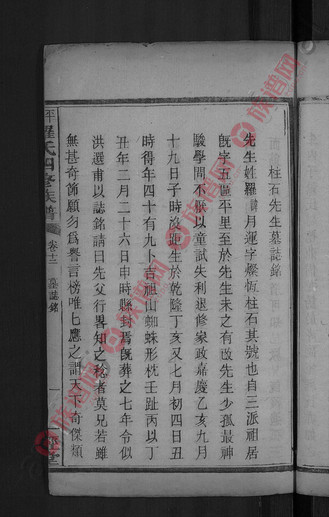 柱石先生墓誌銘
先生姓羅諱月運字燦恆柱石其號也自三派祖居
旣字五區平里至於先生未之有改先生少孤最神
駿學問不低以童試失利退修家政嘉慶乙亥九月
十九日子時沒距生於乾隆丁亥又七月初四日丑
時得年四十有九卜吉祖山蜘蛛形枕壬趾丙以丁
丑年二月二十六日申時縣封焉旣葬之七年令似
洪選甫以誌銘請曰先父行畧知之稔者莫兄若雖
無甚奇節願勿爲譽言榜唯乜應之謂天下奇傑類
羅氏四修族譜
卷十二
墓誌銘
一
族譜网
族譜网
族譜网